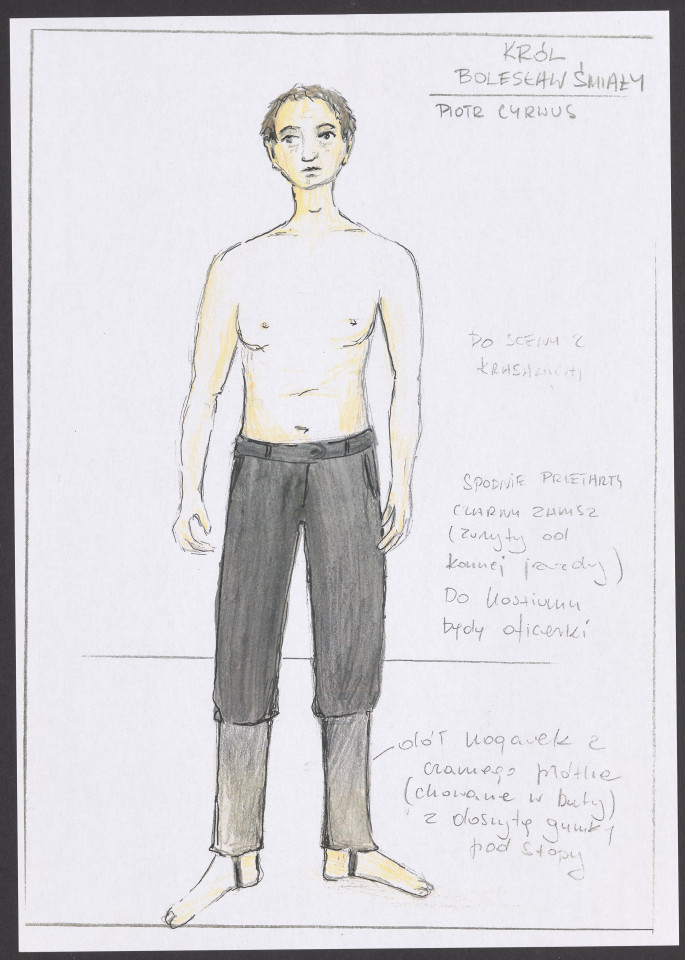 KRÓL
BOLESŁAW ŚMIAŁY
PIOTR CYRWUS
DO SCENY Z
KRASAWICĄ
SPODNIE PRZETARTY
CZARNY ZAMSZ
(zużyty od
konnej jazdy)
Do kostiumu
będą oficerki
dół nogawek z
czarnego płótna
(chowane w buty)
z doszytą gumką
pod stopy